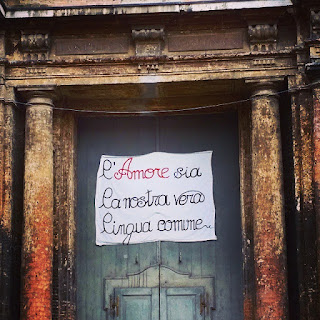 l'Amore sia
la nostra vera
lingua comune